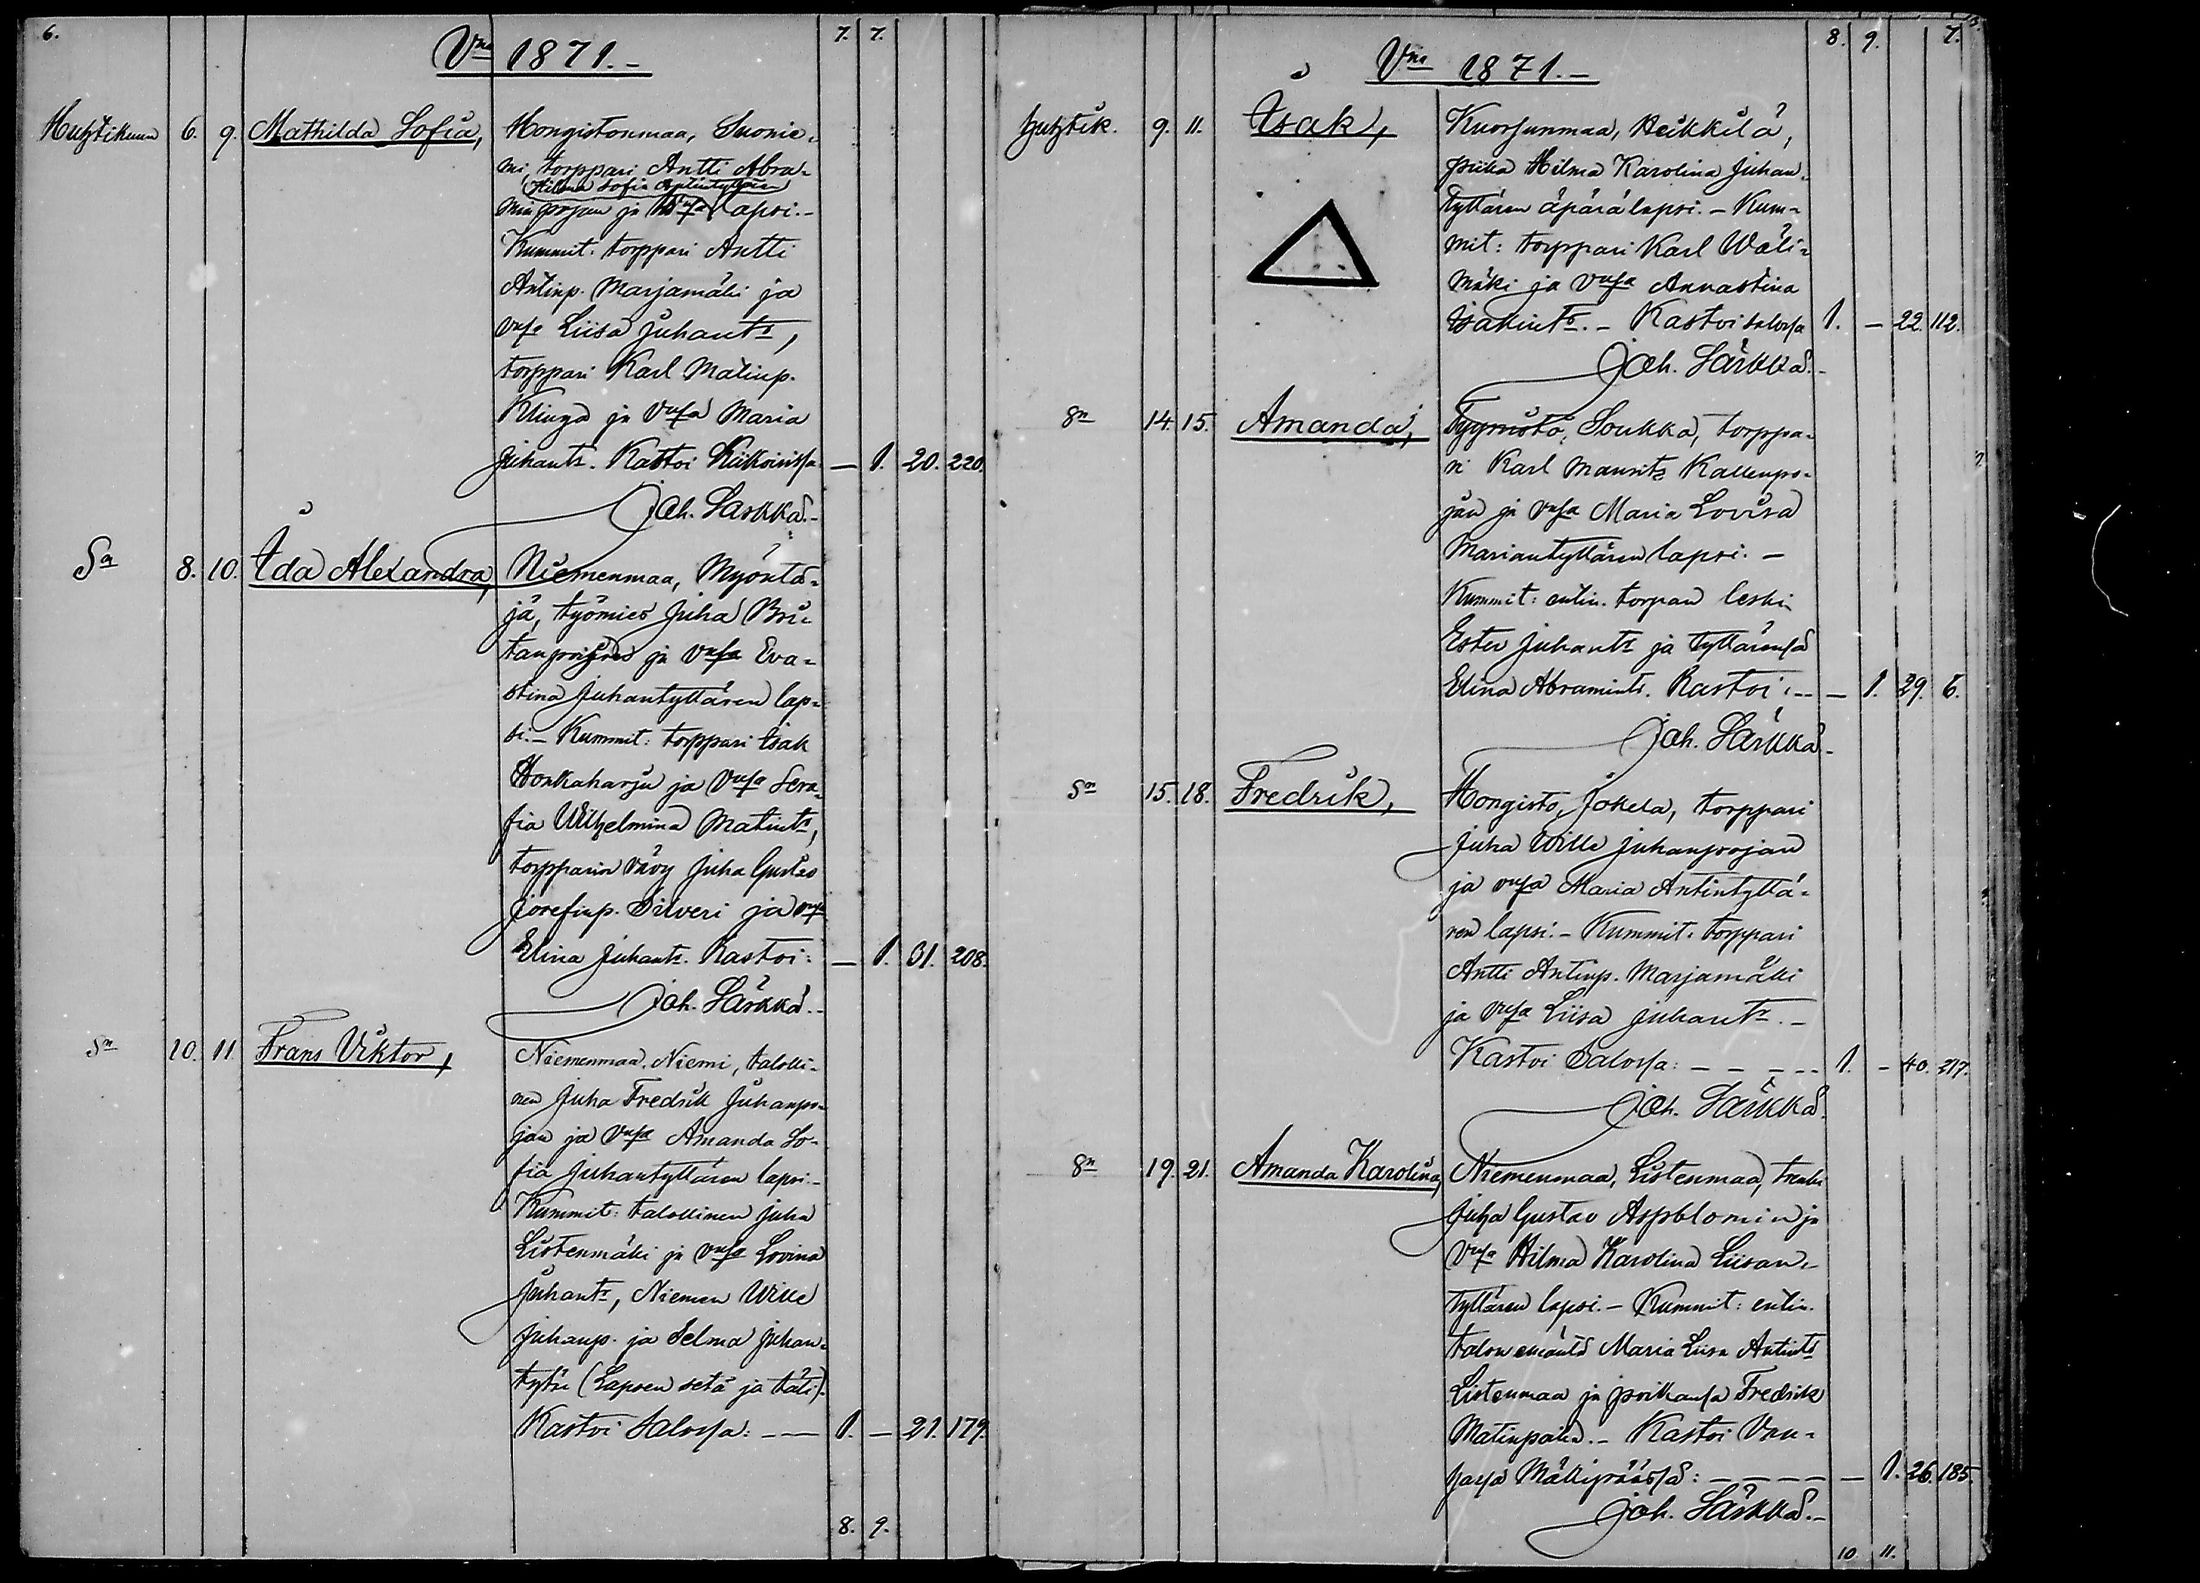 6.
Vna 1871.-
7. 7.
Huhtikuun 6. 9. Mathilda Sofia, Hongistonmaa, Suonie-
mi, torppari Antti Abra-
Hilma Sofia Antintyttären
minpojan ja Vnsa lapsi.-
Kummit: torppari Antti
Antinp. Marjamäki ja
Vnsa Liisa Juhants,
torppari Karl Matinp.
Klinga ja Vnsa Maria
Juhants. Kastoi Kiikoisissa — 1. 20. 220.
Joh. Särkkä.-
Sn 8. 10. Ida Alexandra, Niemenmaa, Myöntä-
jä, työmies Juha Brii-
tanpoijan ja Vnsa Eva-
stina Juhantyttären lap-
si.- Kummit: torppari Isak
Honkaharju ja Vnsa Sera-
fia Wilhelmina Matints,
torpparin vävy Juha Gustav
Josefinp. Silveri ja vnsa
Elina Juhants. Kastoi: — 1. 31. 208.
Joh. Särkkä.-
Sn 10. 11. Frans Viktor, Niemenmaa, Niemi, talolli-
nen Juha Fredrik Juhanpo-
jan ja Vnsa Amanda So-
fia Juhantyttären lapsi.-
Kummit: talollinen Juha
Listenmäki ja vnsa Lovina
Juhants, Niemen Wille
Juhanp. ja Selma Juhan-
tytär (Lapsen setä ja täti).
Kastoi Salossa: —— 1. — 21. 179.
8. 9.
Vna 1871.-
8. 9. 7.
Huhtik. 9. 11. Isak, Kuorsunmaa, Heikkilä,
piika Hilma Karolina Juhan-
tyttären äpärälapsi.- Kum-
mit: torppari Karl Wäli-
mäki ja Vnsa Annastina
Isakints.- Kastoi Salossa 1. — 22. 112.
Joh. Särkkä.-
Sn 14. 15. Amanda, Tyymistö, Soukka, torppa-
ri Karl Maurits Kallenpo-
jan ja vnsa Maria Lovisa
Mariantyttären lapsi.-
Kummit: entin. torpan leski
Ester Juhants ja tyttärensä
Elina Abramints. Kastoi: — — 1. 29. 6.
Joh. Särkkä.-
Sn 15. 18. Fredrik, Hongisto, Jokela, torppari
Juha Wille Juhanpojan
ja vnsa Maria Antintyttä-
ren lapsi.- Kummit: torppari
Antti Antinp. Marjamäki
ja vnsa Liisa Juhants.-
Kastoi Salossa: — — — — 1. — 40. 217.
Joh. Särkkä.
Sn 19. 21. Amanda Karolina, Niemenmaa, Listenmaa, renki
Juha Gustav Aspblomin ja
Vnsa Hilma Karolina Liisan-
tyttären lapsi.- Kummit: entin.
talon emäntä Maria Liisa Antints
Listenmaa ja poikansa Fredrik
Matinpoika.- Kastoi Van-
hassa Mäkipäässä: — — — — 1. 26. 185.
Joh. Särkkä.-
10 11.